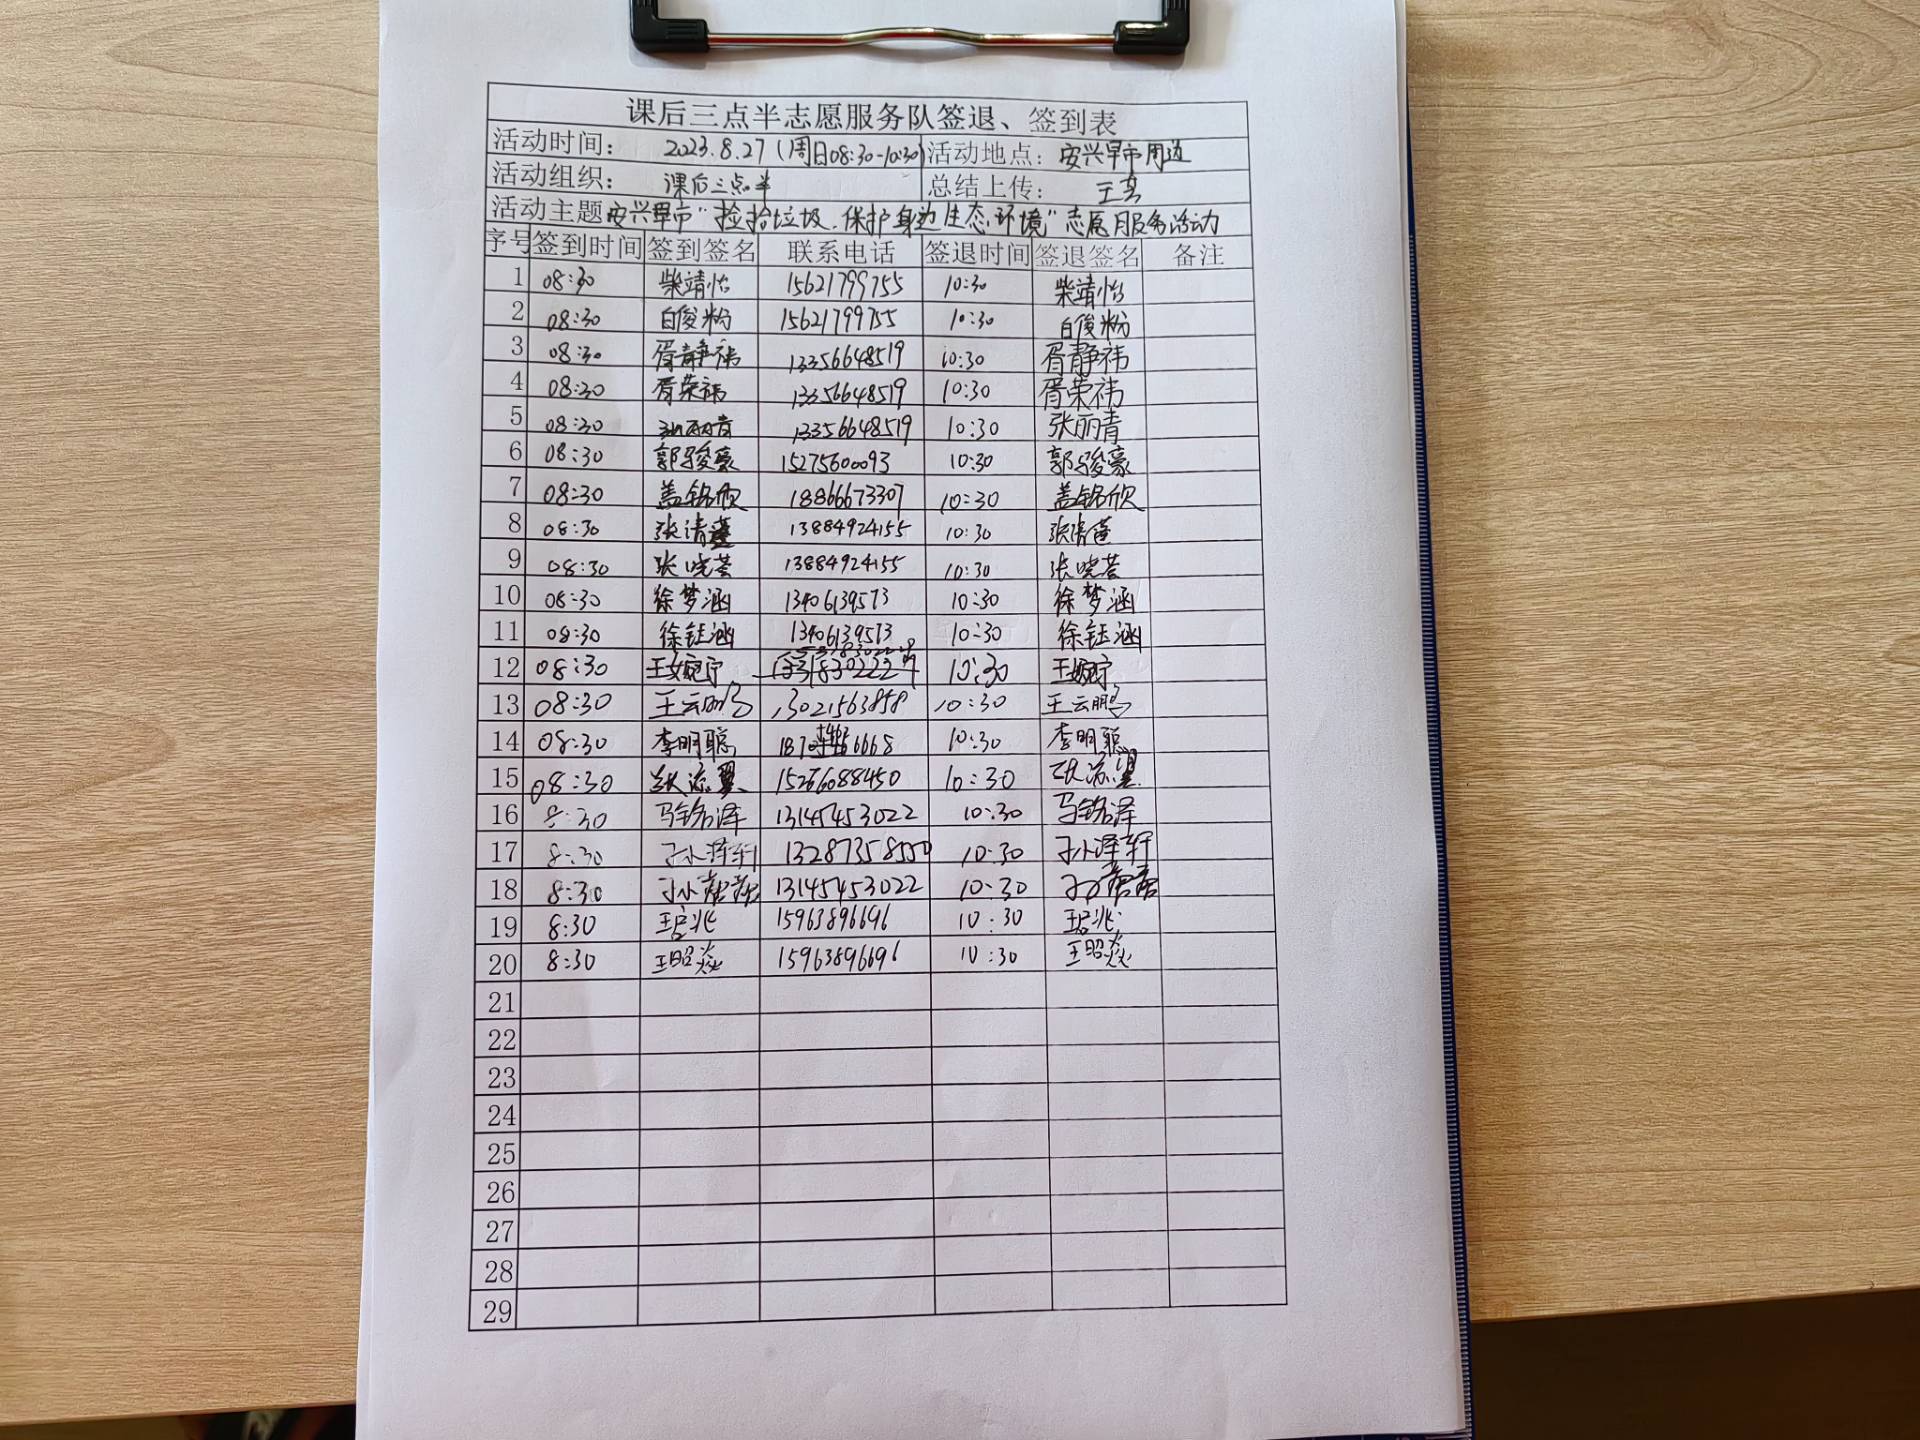 课后三点半志愿服务队签退、签到表
活动时间： 2023.8.27（周日08:30-10:30） 活动地点： 安兴早市周边
活动组织： 课后三点半 总结上传： 王
活动主题 安兴早市“捡拾垃圾.保护身边生态环境”志愿服务活动
序号 签到时间 签到签名 联系电话 签退时间 签退签名 备注
1 08:30 柴靖怡 15621799755 10:30 柴靖怡
2 08:30 白俊粉 15621799755 10:30 白俊粉
3 08:30 胥静祎 13356648519 10:30 胥静祎
4 08:30 胥荣祎 13356648519 10:30 胥荣祎
5 08:30 张丽青 13356648519 10:30 张丽青
6 08:30 郭骏豪 15275600093 10:30 郭骏豪
7 08:30 盖铭欣 18866673307 10:30 盖铭欣
8 08:30 张清莲 13884924155 10:30 张清莲
9 08:30 张晓芸 13884924155 10:30 张晓芸
10 08:30 徐梦涵 13406139573 10:30 徐梦涵
11 08:30 徐钰涵 13406139573 10:30 徐钰涵
12 08:30 王婉宁 10:30 王婉宁
13 08:30 王云鹏 13021563858 10:30 王云鹏
14 08:30 李明聪 10:30 李明聪
15 08:30 张添翼 15266088450 10:30 张添翼
16 8:30 马铭泽 13145453022 10:30 马铭泽
17 8:30 孙泽轩 13287358550 10:30 孙泽轩
18 8:30 孙 13145453022 10:30 孙
19 8:30 王 兆 15963896696 10:30 王 兆
20 8:30 王昭焱 15963896696 10:30 王昭焱
21
22
23
24
25
26
27
28
29